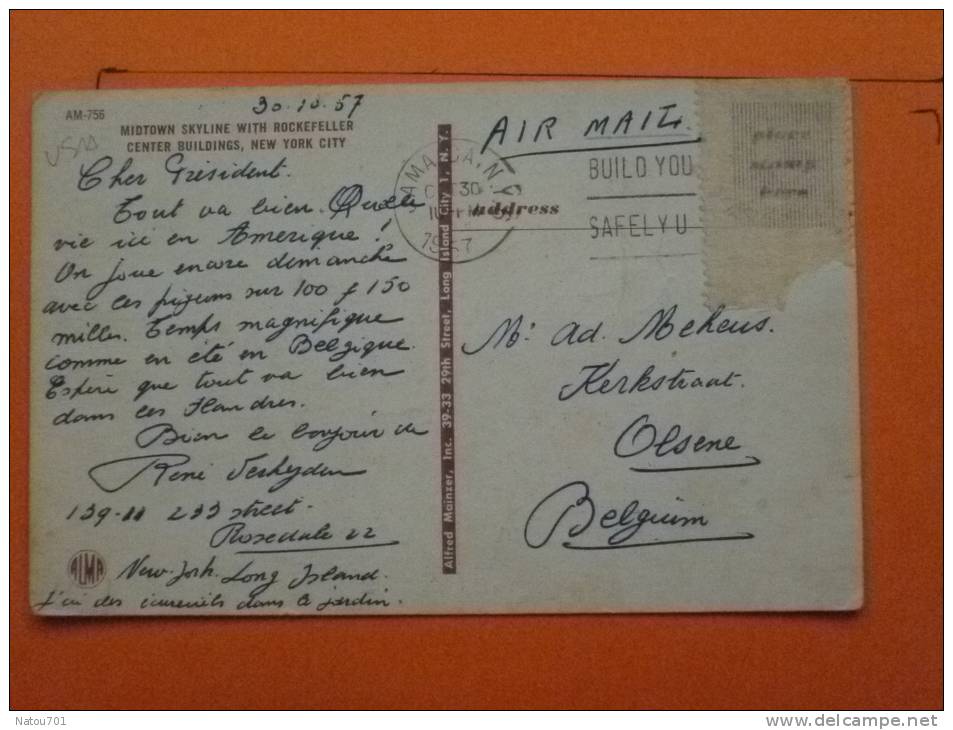 AM-756
30.10.57
MIDTOWN SKYLINE WITH ROCKEFELLER
CENTER BUILDINGS, NEW YORK CITY
USA
Cher Président.
Tout va bien. Quelle
vie ici en Amerique!
On joue encore dimanche
avec les pigeons sur 100 & 150
milles. Temps magnifique
comme en été en Belgique.
Espère que tout va bien
dans les Flandres.
Bien le bonjour de
René Verheyden
139-11 233 street.
Rosedale 22
New-York. Long Island.
J'ai des écureuils dans le jardin.
ALMA
Alfred Mainzer, Inc. 39-33 29th Street, Long Island City 1, N. Y.
AIR MAIL.
JAMAICA, N.Y.
OCT 30
1957
BUILD YOU
SAFELY U
address
place
stamp
here
Mr. Ad. Meheus.
Kerkstraat.
Olsene
Belguim
Natou701
www.delcampe.net